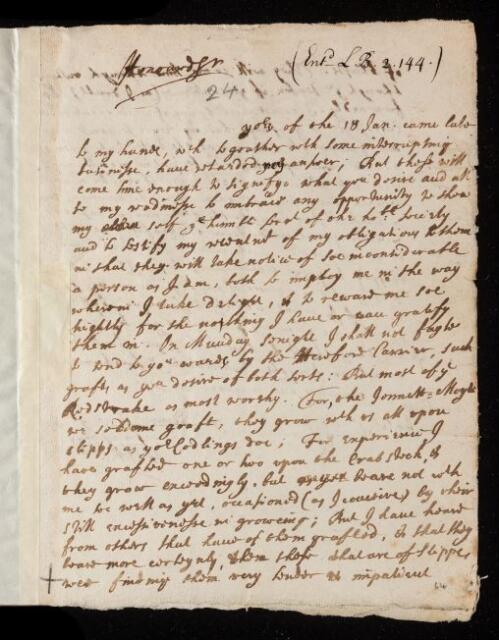 (Entd L B 2. 144.)
24
yors of the 18 Jan. came late
to my hands, wch togeather wth some interrupting
businesse, have retarded my answer; But these will
come time enough to signifye what you desire and als
to my readinesse to embrace any opportunity to shew
my self ye humble servt of the hoble Society
and to testify my resentmt of my obligations to them
in that they will take notice of soe inconsiderable
a person as I am, both to imploy me in the way
wherein I take delight, & to reward me soe
highly for the nothing I have or can gratify
them in. On Munday senight I shall not fayle
to send to you wards by the Hereford Carrier, such
grafts as you desire of both sorts: But most of ye
Redstrake as most worthy. For, the Jennett-Moyle
we seldome graft, they grow wth us all upon
slipps, as yor Codlings doe; For experience I
have grafted one or two upon the Crabstock, &
they grow exceedingly, but beare not wth
me so well as yet, occasioned (as I conceive) by their
still excessivenesse in growing; But I have heard
from others that have of them grafted, & that they
beare more certeynly, then those that are of slipps
wee finding them very tender & impatient